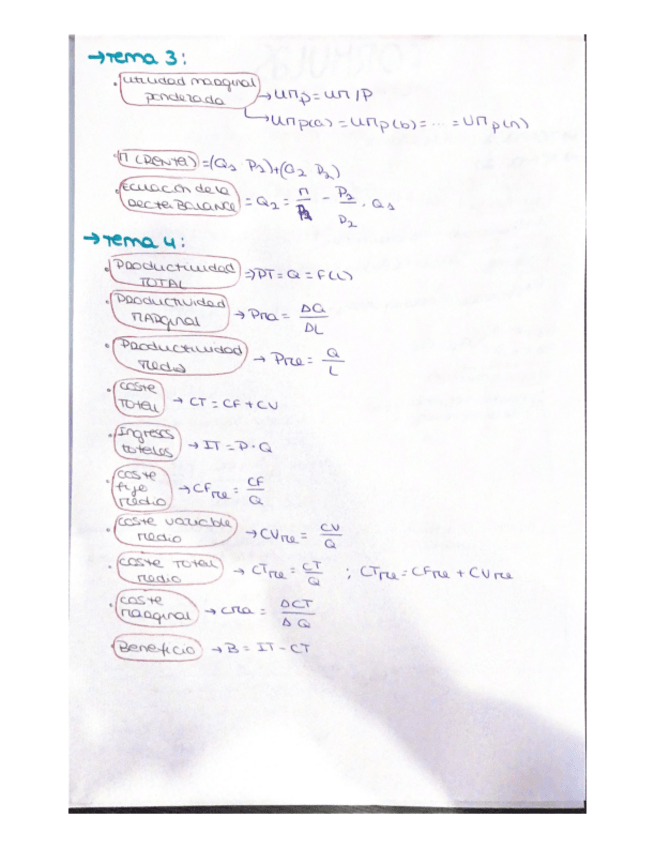 →Tema 3:
· Utilidad marginal ponderada → UMp = UM / P
→ UMp(a) = UMp(b) = ... = UMp(n)
· M (Renta) = (Q1 P1) + (Q2 P2)
· Ecuación de la recta Balance = Q2 = M/P2 - P1/P2 · Q1
→Tema 4:
· Productividad TOTAL ⇒ PT = Q = F(L)
· Productividad Marginal → PMa = ΔQ/ΔL
· Productividad Medio → PMe = Q/L
· Coste Total → CT = CF + CV
· Ingresos totales → IT = P · Q
· Coste fijo Medio → CFMe = CF/Q
· Coste variable Medio → CVMe = CV/Q
· Coste Total Medio → CTMe = CT/Q ; CTMe = CFMe + CVMe
· Coste Marginal → CMa = ΔCT/ΔQ
· Beneficio → B = IT - CT